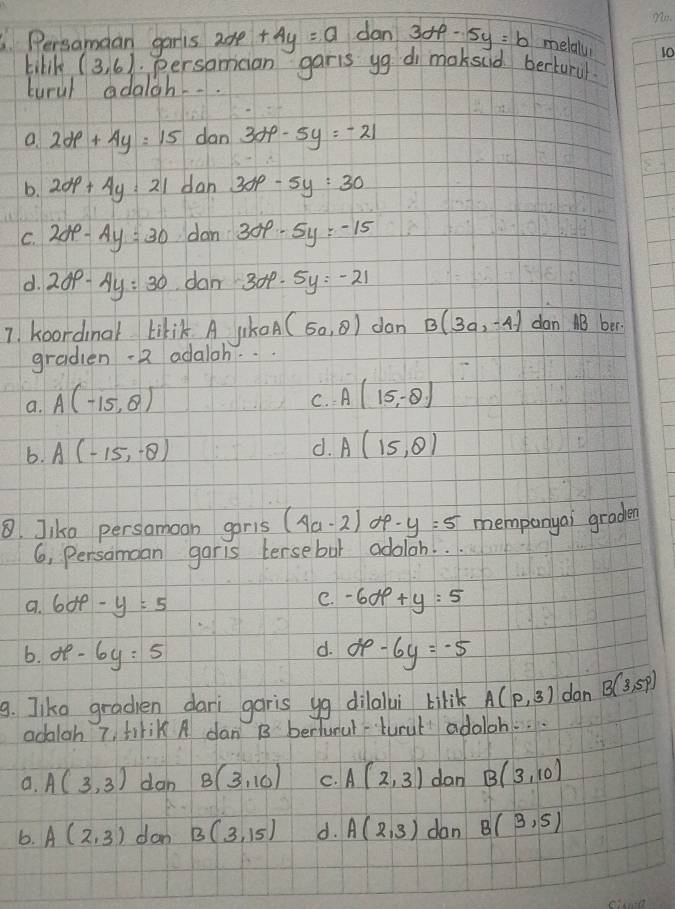 6. Persamaan garis 2x + 4y = a dan 3x - 5y = b melalui
titik (3,6). Persamaan garis yg di maksud berturut-
turut adalah ...
a. 2x + 4y = 15 dan 3x - 5y = -21
b. 2x + 4y = 21 dan 3x - 5y = 30
c. 2x - 4y = 30 dan 3x - 5y = -15
d. 2x - 4y = 30 dan 3x - 5y = -21
7. koordinat titik A jika A(5a,8) dan B(3a,-4) dan AB ber-
gradien -2 adalah ...
a. A(-15,8) c. A(15,-8)
b. A(-15,-8) d. A(15,8)
8. Jika persamaan garis (4a-2)x - y = 5 mempunyai gradien
6, Persamaan garis tersebut adalah ...
a. 6x - y = 5 c. -6x + y = 5
b. x - 6y = 5 d. x - 6y = -5
9. Jika gradien dari garis yg dilalui titik A(p,3) dan B(3,5p)
adalah 7, titik A dan B berturut-turut adalah ...
a. A(3,3) dan B(3,10) c. A(2,3) dan B(3,10)
b. A(2,3) dan B(3,15) d. A(2,3) dan B(3,5)
No.
10